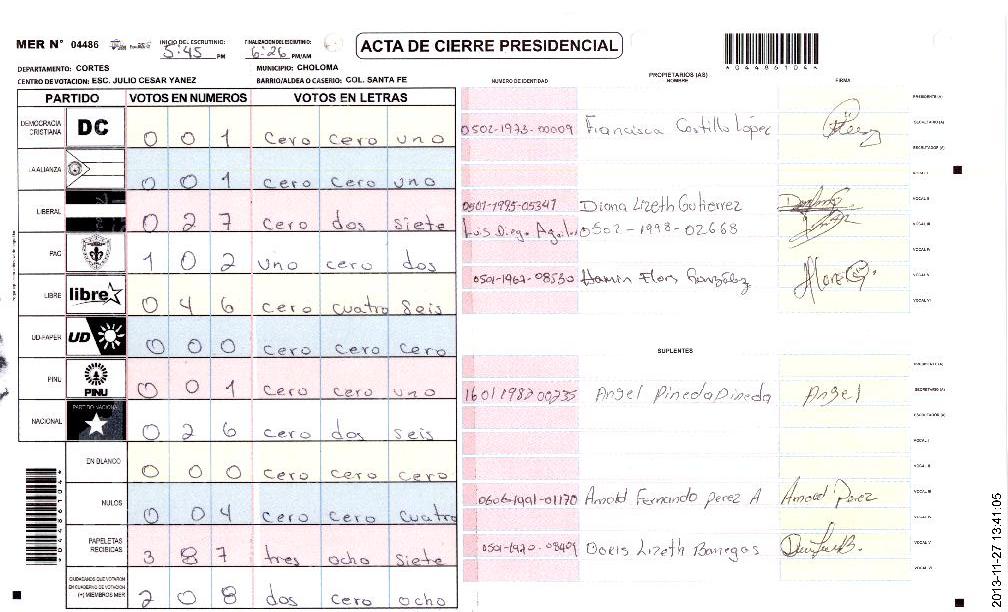 MER N° 04486 INICIO DEL ESCRUTINIO: 5:45 PM FINALIZACION DEL ESCRUTINIO: 6:26 PM/AM ACTA DE CIERRE PRESIDENCIAL
*04486104*
DEPARTAMENTO: CORTES MUNICIPIO: CHOLOMA
CENTRO DE VOTACION: ESC. JULIO CESAR YANEZ BARRIO/ALDEA O CASERIO: COL. SANTA FE
PARTIDO VOTOS EN NUMEROS VOTOS EN LETRAS
DEMOCRACIA CRISTIANA DC 0 0 1 cero cero uno
LA ALIANZA 0 0 1 cero cero uno
LIBERAL 0 2 7 cero dos siete
PAC 1 0 2 uno cero dos
LIBRE libre 0 4 6 cero cuatro seis
UD-FAPER UD 0 0 0 cero cero cero
PINU PINU 0 0 1 cero cero uno
NACIONAL PARTIDO NACIONAL 0 2 6 cero dos seis
EN BLANCO 0 0 0 cero cero cero
NULOS 0 0 4 cero cero cuatro
PAPELETAS RECIBIDAS 3 8 7 tres ocho siete
CIUDADANOS QUE VOTARON EN CUADERNO DE VOTACION (+) MIEMBROS MER 2 0 8 dos cero ocho
PROPIETARIOS (AS)
NUMERO DE IDENTIDAD NOMBRE FIRMA
PRESIDENTE (A)
0502-1973-00009 Francisca Costillo López SECRETARIO (A)
ESCRUTADOR (A)
VOCAL I
0501-1995-05347 Diana Lizeth Gutierrez VOCAL II
Luis Diego Aguilar 0502-1998-02668 VOCAL III
VOCAL IV
0501-1962-08530 Flors González VOCAL V
VOCAL VI
SUPLENTES
PRESIDENTE (A)
1601 1982 00235 Angel Pineda Pineda Angel SECRETARIO (A)
ESCRUTADOR (A)
VOCAL I
VOCAL II
0606-1991-01170 Arnold Fernando Perez A Arnold Perez VOCAL III
VOCAL IV
0501-1970-08409 Doris Lizeth Banegas VOCAL V
VOCAL VI
*04486104*
2013-11-27 13:41:05